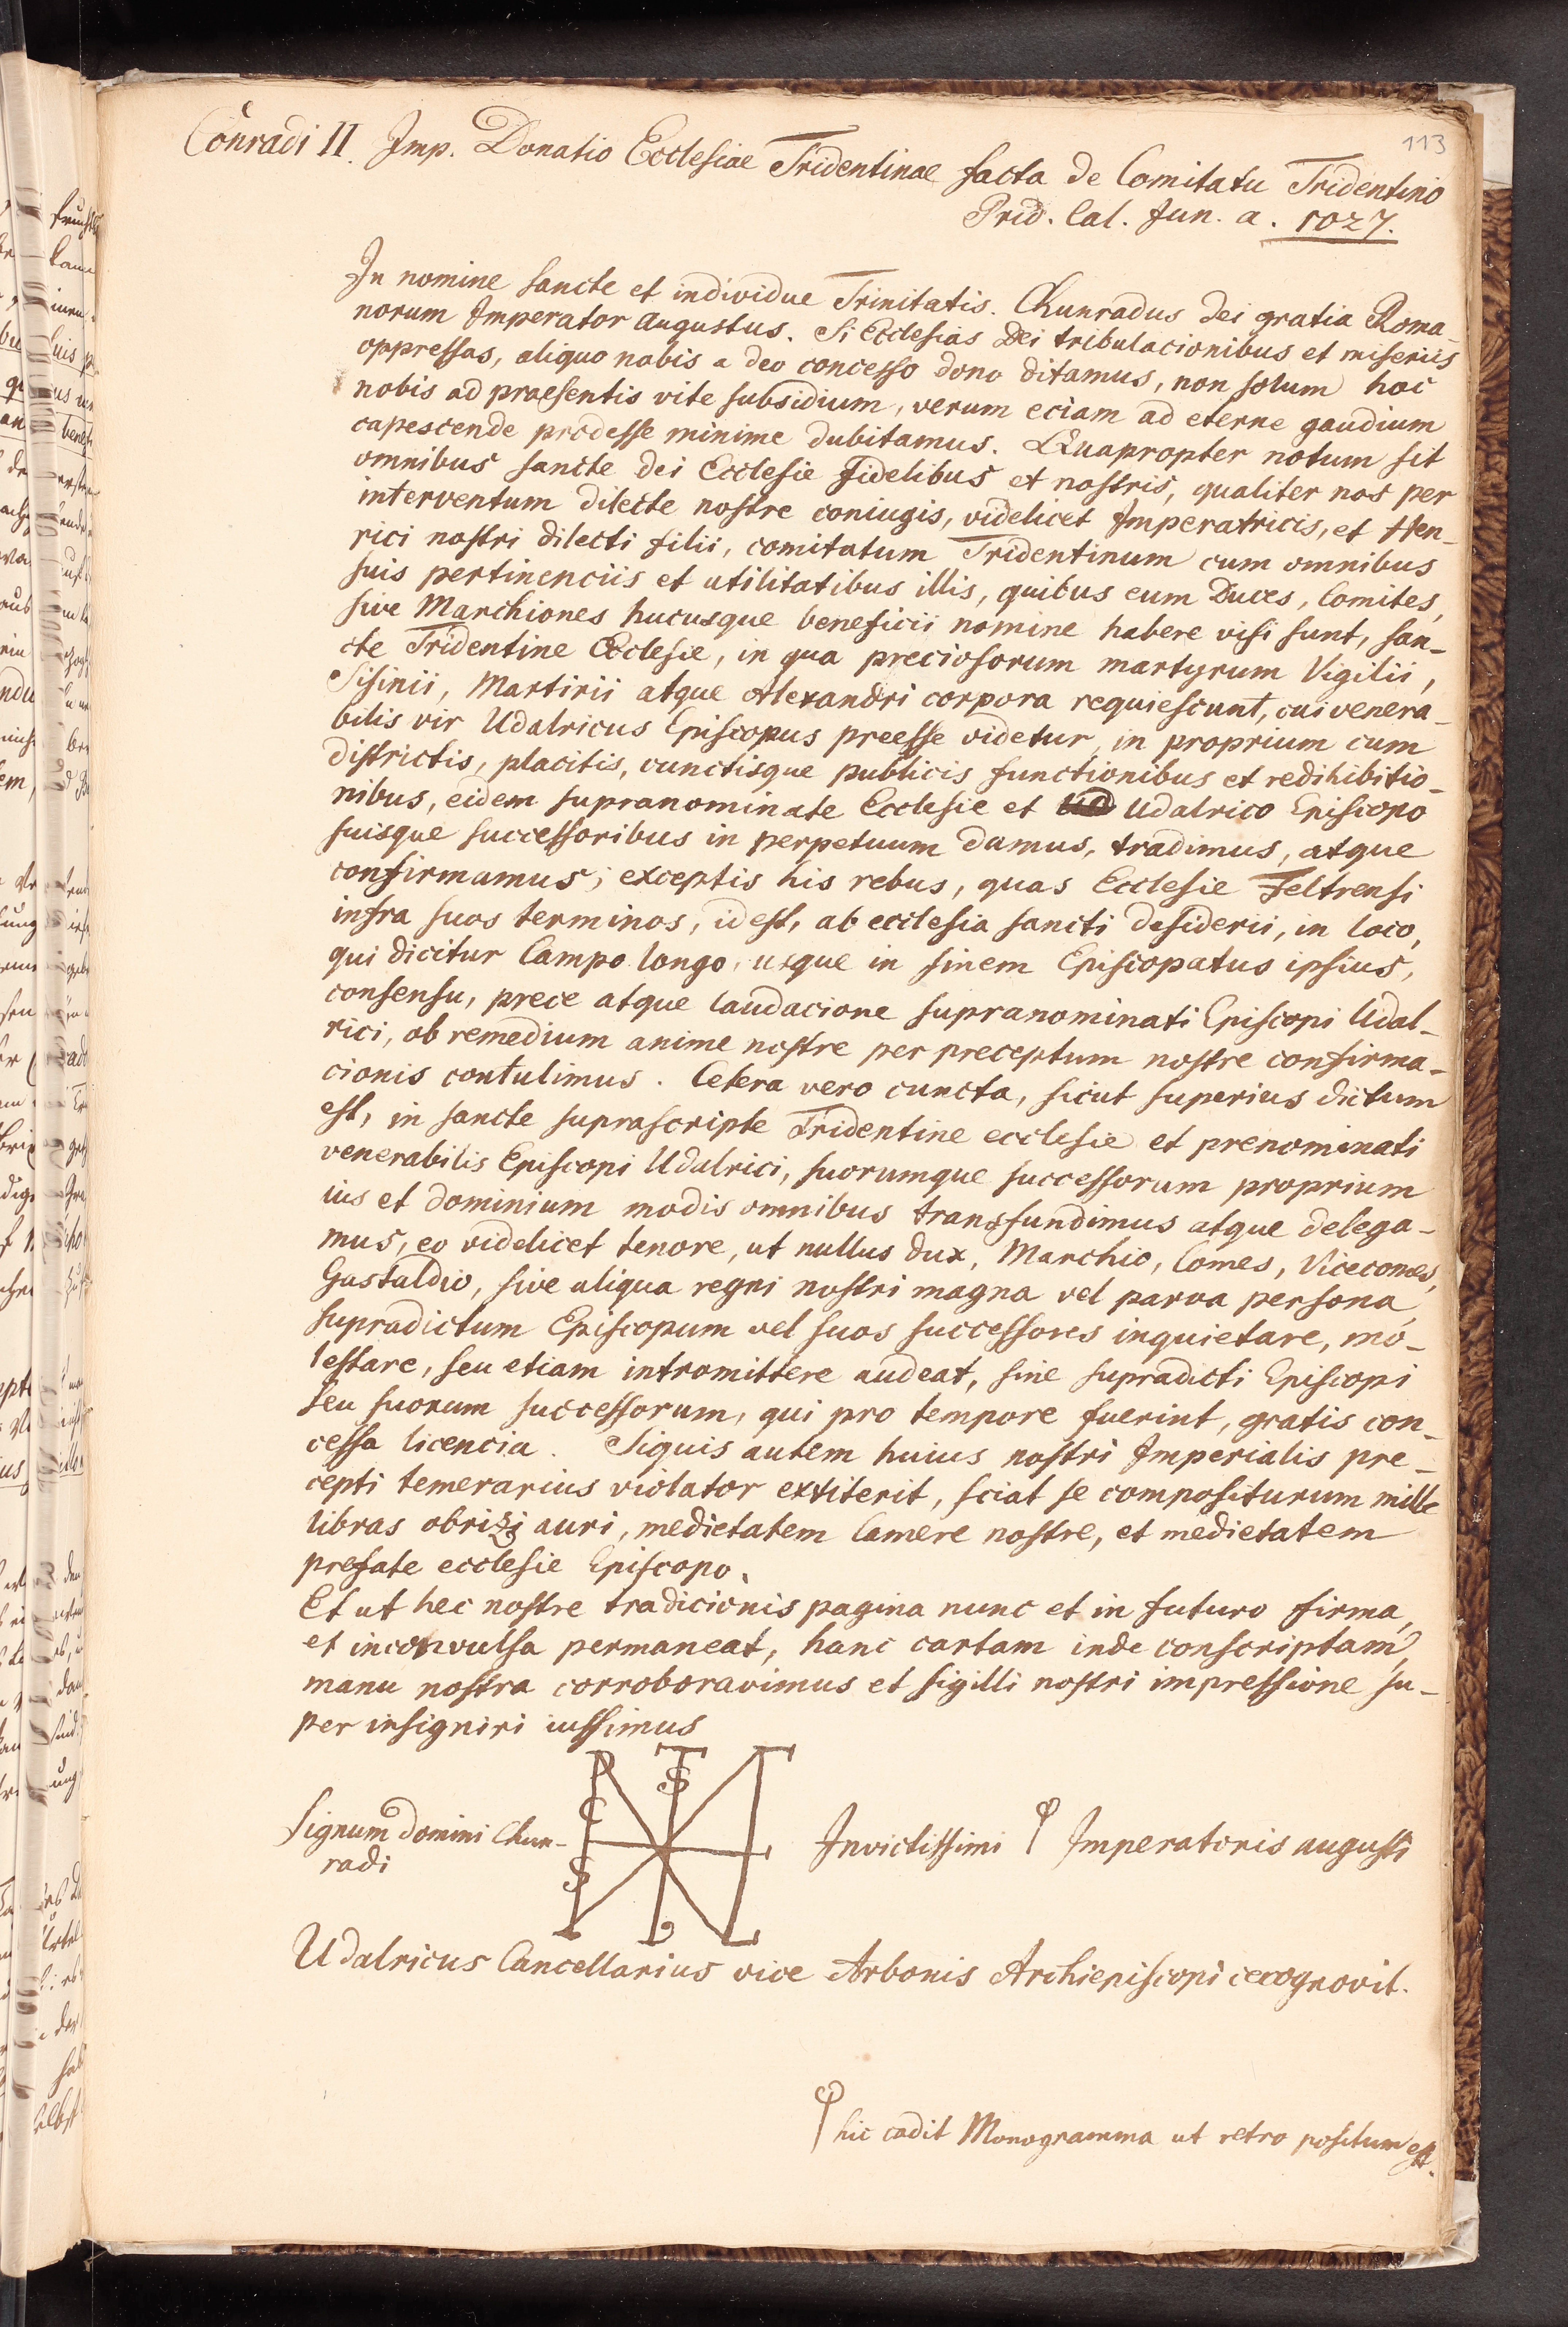 113
Conradi II. Imp. Donatio Ecclesiae Tridentinae facta de Comitatu Tridentino
Prid. Cal. Jun. a. 1027.
In nomine sancte et individue Trinitatis. Chunradus Dei gratia Roma-
norum Imperator Augustus. Si Ecclesias Dei tribulacionibus et miseriis
oppressas, aliquo nobis a deo concesso dono ditamus, non solum hoc
nobis ad praesentis vite subsidium, verum eciam ad eterne gaudium
capescende prodesse minime dubitamus. Quapropter notum sit
omnibus sancte dei Ecclesie fidelibus et nostris, qualiter nos per
interventum dilecte nostre coniugis, videlicet Imperatricis, et Hen-
rici nostri dilecti filii, comitatum Tridentinum cum omnibus
suis pertinenciis et utilitatibus illis, quibus eum Duces, Comites,
sive Marchiones hucusque beneficii nomine habere visi sunt, san-
cte Tridentine Ecclesie, in qua preciosorum martyrum Vigilii,
Sisinii, Martirii atque Alexandri corpora requiescunt, cui venera-
bilis vir Udalricus Episcopus preesse videtur, in proprium cum
districtis, placitis, cunctisque publicis functionibus et redihibitio-
nibus, eidem supranominate Ecclesie et Udalrico Episcopo
suisque successoribus in perpetuum damus, tradimus, atque
confirmamus; exceptis his rebus, quas Ecclesie Feltrensi
infra suos terminos, id est, ab ecclesia sancti desiderii, in loco,
qui dicitur Campo longo, usque in finem Episcopatus ipsius,
consensu, prece atque laudacione supranominati Episcopi Udal-
rici, ob remedium anime nostre per preceptum nostre confirma-
cionis contulimus. Cetera vero cuncta, sicut superius dictum
est, in sancte suprascripte Tridentine ecclesie et prenominati
venerabilis Episcopi Udalrici, suorumque successorum proprium
ius et dominium modis omnibus transfundimus atque delega-
mus, eo videlicet tenore, ut nullus dux, Marchio, Comes, Vicecomes,
Gastaldio, sive aliqua regni nostri magna vel parva persona,
supradictum Episcopum vel suos successores inquietare, mo-
lestare, seu etiam intromittere audeat, sine supradicti Episcopi
seu suorum successorum, qui pro tempore fuerint, gratis con-
cessa licencia. Siquis autem huius nostri Imperialis pre-
cepti temerarius violator extiterit, sciat se compositurum mille
libras obrizi auri, medietatem Camere nostre, et medietatem
prefate ecclesie Episcopo.
Et ut hec nostre tradicionis pagina nunc et in futuro firma,
et inconvulsa permaneat, hanc cartam inde conscriptam,
manu nostra corroboravimus et sigilli nostri impressione su-
per insigniri iussimus
Signum domini Chun- Invictissimi Imperatoris augusti
radi
Udalricus Cancellarius vice Arbonis Archiepiscopi recognovit.
hic cadit Monogramma ut retro positum est.